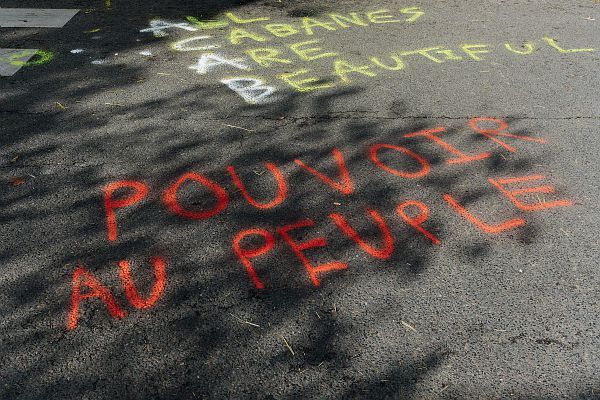 ALL
CABANES
ARE
BEAUTIFUL
POUVOIR
AU PEUPLE